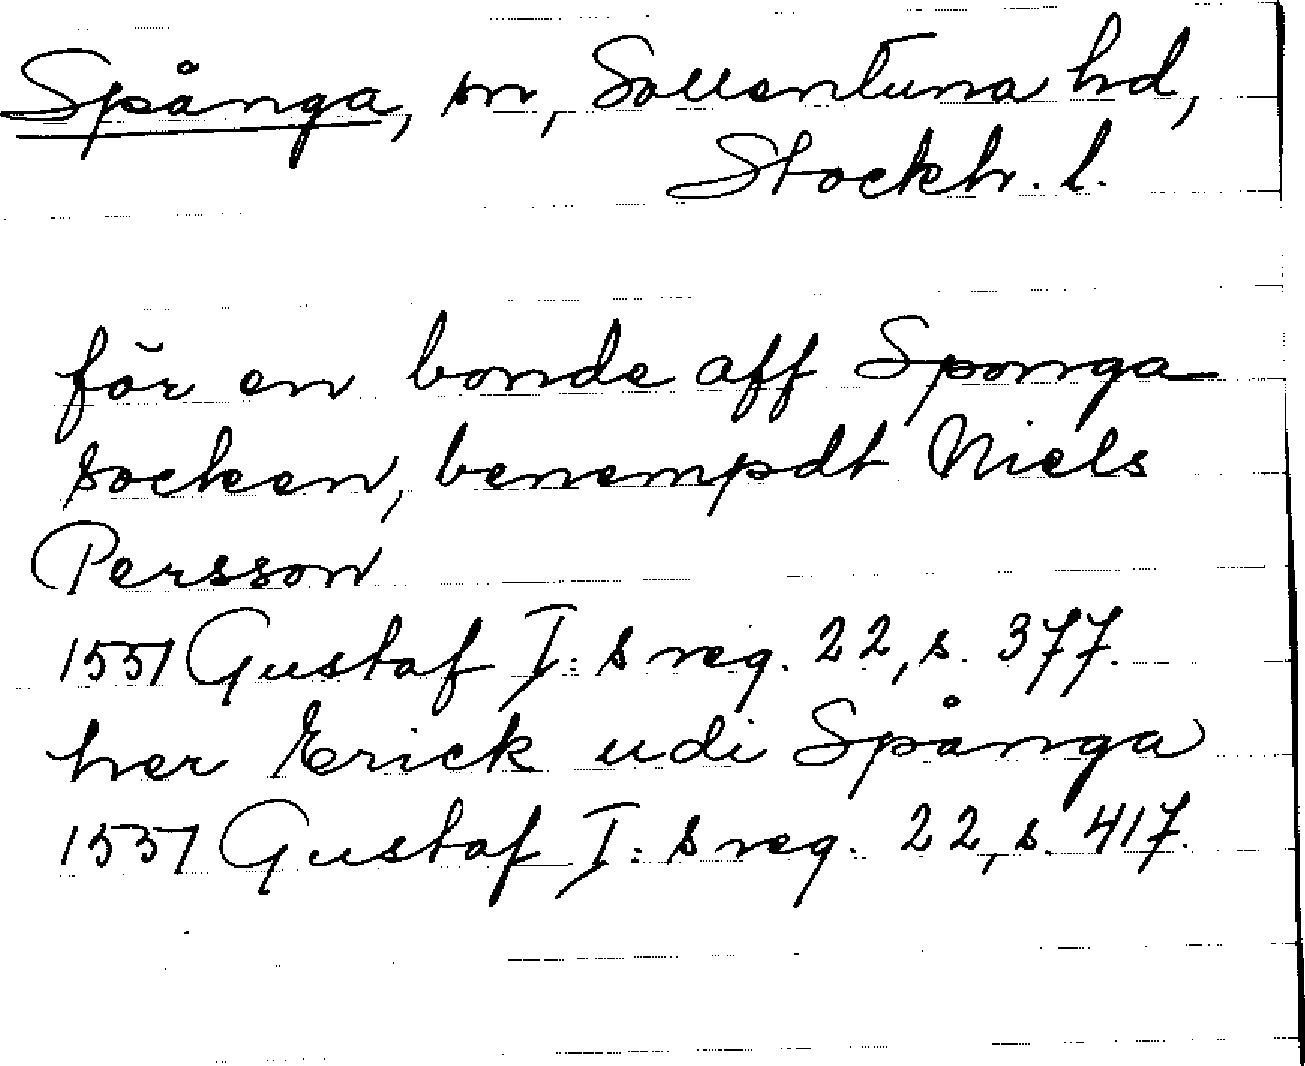 Spånga, sn, Sollentuna hd,
Stockh. l.
för en bonde aff Sponga
socken, benempdt Niels
Persson
1551 Gustaf I: s reg. 22, s. 377.
her Erick udi Spånga
1551 Gustaf I: s reg. 22, s. 417.